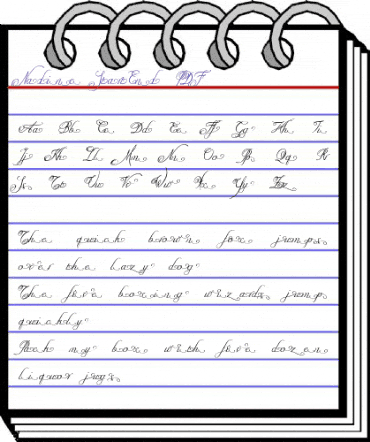 Nadina StartEnd PDF
Aa Bb Cc Dd Ee Ff Gg Hh Ii
Jj Kk Ll Mm Nn Oo Pp Qq Rr
Ss Tt Uu Vv Ww Xx Yy Zz
The quick brown fox jumps
over the lazy dog
The five boxing wizards jump
quickly
Pack my box with five dozen
liquor jugs